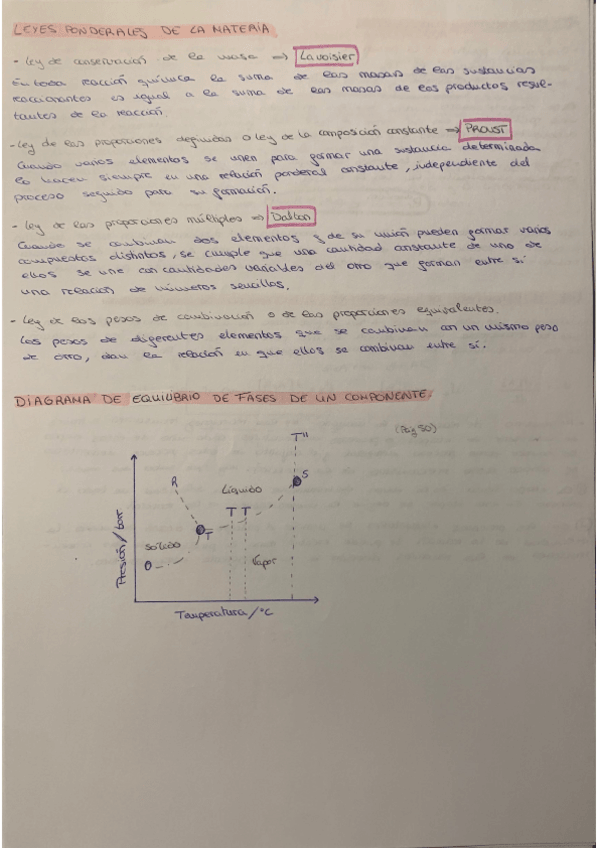 LEYES PONDERALES DE LA MATERIA
- Ley de conservación de la masa => Lavoisier
En toda reacción química la suma de las masas de las sustancias
reaccionantes es igual a la suma de las masas de los productos resul-
tantes de la reacción.
- Ley de las proporciones definidas o ley de la composición constante => PROUST
Cuando varios elementos se unen para formar una sustancia determinada
lo hacen siempre en una relación ponderal constante, independiente del
proceso seguido para su formación.
- Ley de las proporciones múltiples => Dalton
Cuando se combinan dos elementos y de su unión pueden formar varios
compuestos distintos, se cumple que una cantidad constante de uno de
ellos se une con cantidades variables del otro que forman entre sí
una relación de números sencillos.
- Ley de los pesos de combinación o de las proporciones equivalentes.
Los pesos de diferentes elementos que se combinan con un mismo peso
de otro, dan la relación en que ellos se combinan entre sí.
DIAGRAMA DE EQUILIBRIO DE FASES DE UN COMPONENTE
(Pág 50)
T"
R
S
Líquido
T T
T
Sólido
O
Vapor
Presión / bar
Temperatura / °C